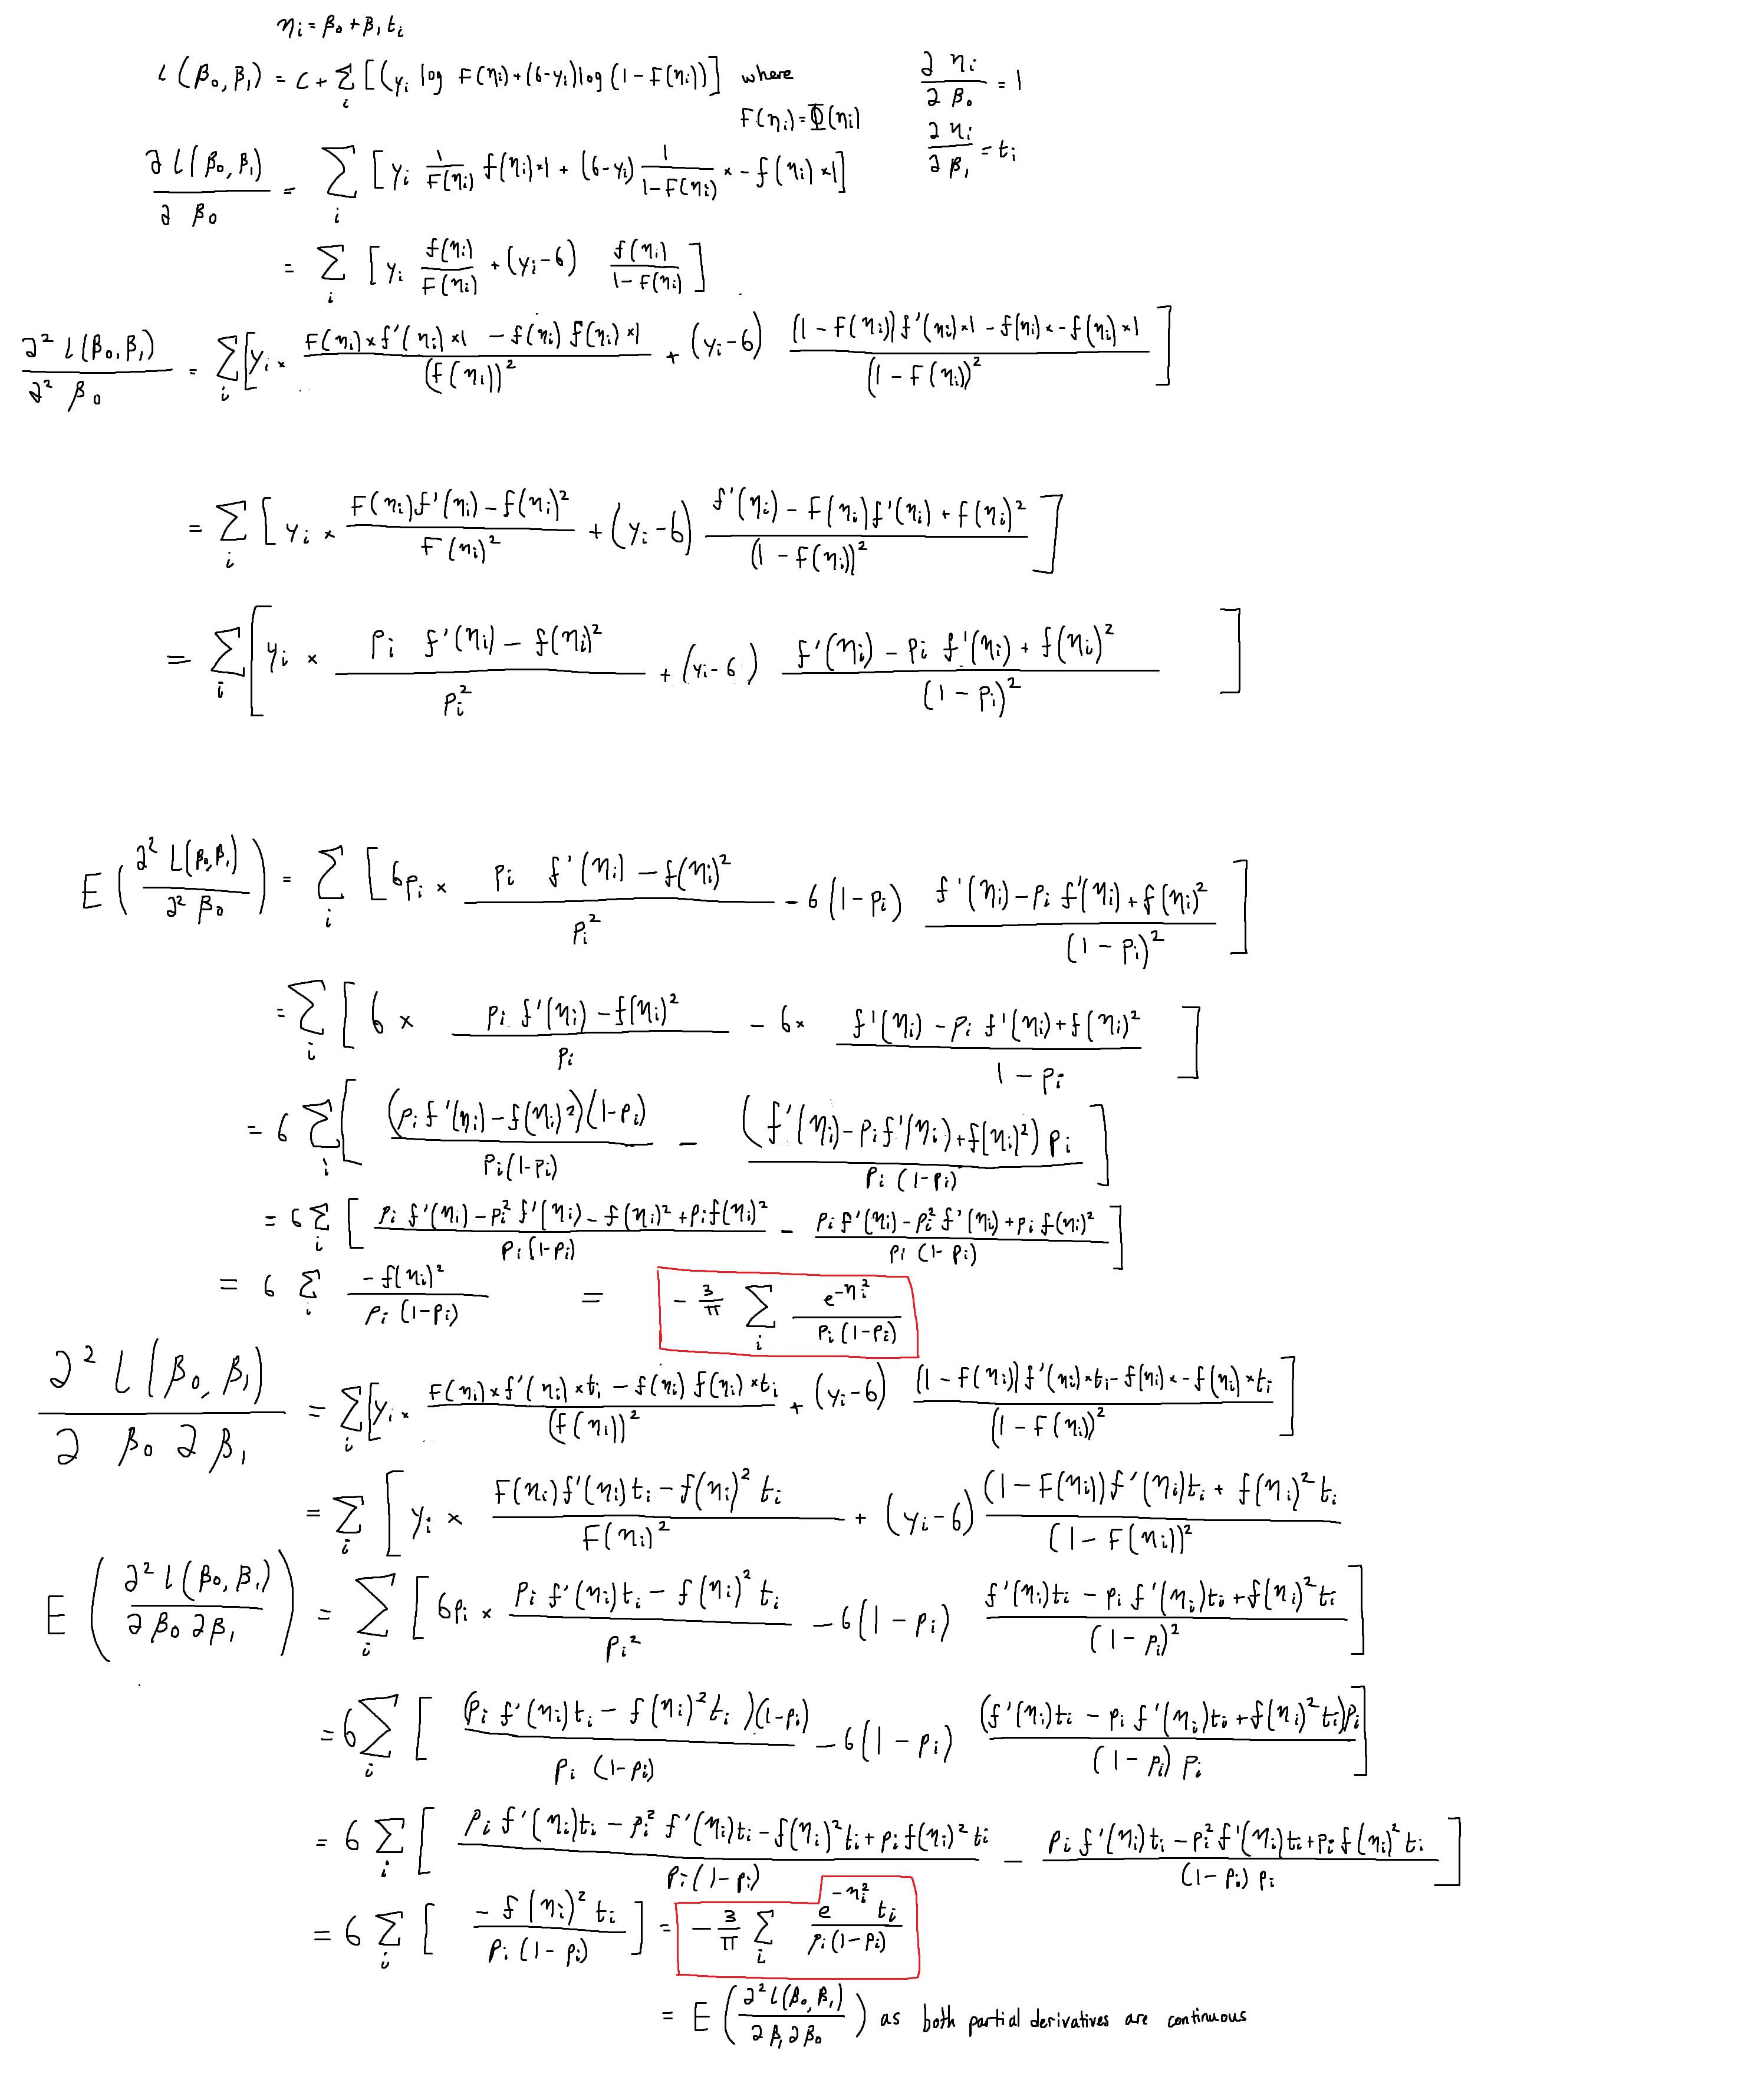 ηᵢ = β₀ + β₁ tᵢ
l(β₀, β₁) = c + Σᵢ [(yᵢ log F(ηᵢ) + (6-yᵢ) log (1 - F(ηᵢ))] where
F(ηᵢ) = Φ(ηᵢ)
∂ηᵢ/∂β₀ = 1
∂ηᵢ/∂β₁ = tᵢ
∂l(β₀, β₁)/∂β₀ = Σᵢ [yᵢ 1/F(ηᵢ) f(ηᵢ)×1 + (6-yᵢ) 1/(1-F(ηᵢ)) × -f(ηᵢ)×1]
= Σᵢ [yᵢ f(ηᵢ)/F(ηᵢ) + (yᵢ-6) f(ηᵢ)/(1-F(ηᵢ))]
∂² l(β₀, β₁)/∂² β₀ = Σᵢ [yᵢ × (F(ηᵢ)×f'(ηᵢ)×1 - f(ηᵢ) f(ηᵢ)×1)/(F(ηᵢ))² + (yᵢ-6) ((1-F(ηᵢ)) f'(ηᵢ)×1 - f(ηᵢ)×-f(ηᵢ)×1)/(1-F(ηᵢ))²]
= Σᵢ [yᵢ × (F(ηᵢ)f'(ηᵢ) - f(ηᵢ)²)/F(ηᵢ)² + (yᵢ-6) (f'(ηᵢ) - F(ηᵢ)f'(ηᵢ) + f(ηᵢ)²)/(1-F(ηᵢ))²]
= Σᵢ [yᵢ × (pᵢ f'(ηᵢ) - f(ηᵢ)²)/pᵢ² + (yᵢ-6) (f'(ηᵢ) - pᵢ f'(ηᵢ) + f(ηᵢ)²)/(1-pᵢ)²]
E(∂² l(β₀, β₁)/∂² β₀) = Σᵢ [6pᵢ × (pᵢ f'(ηᵢ) - f(ηᵢ)²)/pᵢ² - 6(1-pᵢ) (f'(ηᵢ) - pᵢ f'(ηᵢ) + f(ηᵢ)²)/(1-pᵢ)²]
= Σᵢ [6 × (pᵢ f'(ηᵢ) - f(ηᵢ)²)/pᵢ - 6 × (f'(ηᵢ) - pᵢ f'(ηᵢ) + f(ηᵢ)²)/(1-pᵢ)]
= 6 Σᵢ [(pᵢ f'(ηᵢ) - f(ηᵢ)²)(1-pᵢ)/(pᵢ(1-pᵢ)) - (f'(ηᵢ) - pᵢ f'(ηᵢ) + f(ηᵢ)²) pᵢ/(pᵢ(1-pᵢ))]
= 6 Σᵢ [(pᵢ f'(ηᵢ) - pᵢ² f'(ηᵢ) - f(ηᵢ)² + pᵢ f(ηᵢ)²)/(pᵢ(1-pᵢ)) - (pᵢ f'(ηᵢ) - pᵢ² f'(ηᵢ) + pᵢ f(ηᵢ)²)/(pᵢ(1-pᵢ))]
= 6 Σᵢ -f(ηᵢ)²/(pᵢ(1-pᵢ)) = -3/π Σᵢ e^(-ηᵢ²)/(pᵢ(1-pᵢ))
∂² l(β₀, β₁)/∂β₀ ∂β₁ = Σᵢ [yᵢ × (F(ηᵢ)×f'(ηᵢ)×tᵢ - f(ηᵢ) f(ηᵢ)×tᵢ)/(F(ηᵢ))² + (yᵢ-6) ((1-F(ηᵢ)) f'(ηᵢ)×tᵢ - f(ηᵢ)×-f(ηᵢ)×tᵢ)/(1-F(ηᵢ))²]
= Σᵢ [yᵢ × (F(ηᵢ)f'(ηᵢ)tᵢ - f(ηᵢ)² tᵢ)/F(ηᵢ)² + (yᵢ-6) ((1-F(ηᵢ))f'(ηᵢ)tᵢ + f(ηᵢ)² tᵢ)/(1-F(ηᵢ))²
E(∂² l(β₀, β₁)/∂β₀ ∂β₁) = Σᵢ [6pᵢ × (pᵢ f'(ηᵢ)tᵢ - f(ηᵢ)² tᵢ)/pᵢ² - 6(1-pᵢ) (f'(ηᵢ)tᵢ - pᵢ f'(ηᵢ)tᵢ + f(ηᵢ)² tᵢ)/(1-pᵢ)²]
= 6 Σᵢ [(pᵢ f'(ηᵢ)tᵢ - f(ηᵢ)² tᵢ)(1-pᵢ)/(pᵢ(1-pᵢ)) - 6(1-pᵢ) (f'(ηᵢ)tᵢ - pᵢ f'(ηᵢ)tᵢ + f(ηᵢ)² tᵢ)pᵢ/((1-pᵢ) pᵢ)]
= 6 Σᵢ [(pᵢ f'(ηᵢ)tᵢ - pᵢ² f'(ηᵢ)tᵢ - f(ηᵢ)² tᵢ + pᵢ f(ηᵢ)² tᵢ)/(pᵢ(1-pᵢ)) - (pᵢ f'(ηᵢ)tᵢ - pᵢ² f'(ηᵢ)tᵢ + pᵢ f(ηᵢ)² tᵢ)/((1-pᵢ) pᵢ)]
= 6 Σᵢ [-f(ηᵢ)² tᵢ/(pᵢ(1-pᵢ))] = -3/π Σᵢ e^(-ηᵢ²) tᵢ/(pᵢ(1-pᵢ))
= E(∂² l(β₀, β₁)/∂β₁ ∂β₀) as both partial derivatives are continuous